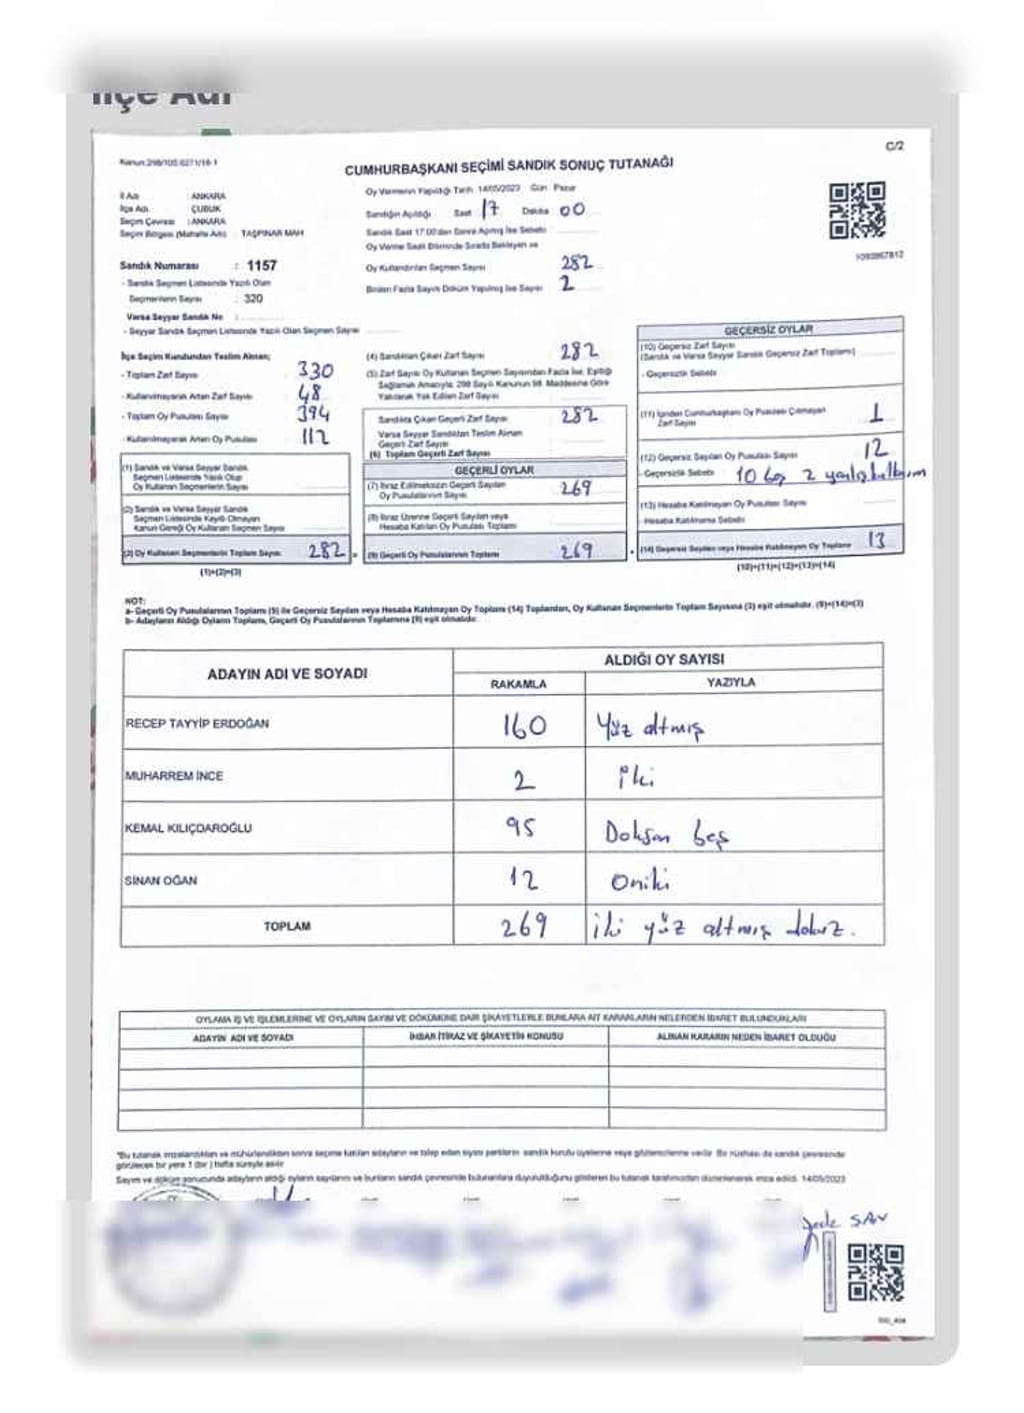 İlçe Adı
Kanun:298/105.6271/16-1
C/2
CUMHURBAŞKANI SEÇİMİ SANDIK SONUÇ TUTANAĞI
İl Adı : ANKARA
İlçe Adı : ÇUBUK
Seçim Çevresi : ANKARA
Seçim Bölgesi (Mahalle Adı) : TAŞPINAR MAH
Sandık Numarası : 1157
- Sandık Seçmen Listesinde Yazılı Olan
Seçmenlerin Sayısı : 320
Varsa Seyyar Sandık No :
- Seyyar Sandık Seçmen Listesinde Yazılı Olan Seçmen Sayısı
Oy Vermenin Yapıldığı Tarih 14/05/2023 Gün Pazar
Sandığın Açıldığı Saat 17 Dakika 00
Sandık Saat 17:00'den Sonra Açılmış İse Sebebi
Oy Verme Saati Bitiminde Sırada Bekleyen ve
Oy Kullandırılan Seçmen Sayısı 282
Birden Fazla Sayım Döküm Yapılmış İse Sayısı 2
İlçe Seçim Kurulundan Teslim Alınan;
- Toplam Zarf Sayısı 330
- Kullanılmayarak Artan Zarf Sayısı 48
- Toplam Oy Pusulası Sayısı 394
- Kullanılmayarak Artan Oy Pusulası 112
(1) Sandık ve Varsa Seyyar Sandık
Seçmen Listesinde Yazılı Olup
Oy Kullanan Seçmenlerin Sayısı
(2) Sandık ve Varsa Seyyar Sandık
Seçmen Listesinde Kayıtlı Olmayan
Kanun Gereği Oy Kullanan Seçmen Sayısı
(3) Oy Kullanan Seçmenlerin Toplam Sayısı 282
(1)+(2)=(3)
(4) Sandıktan Çıkan Zarf Sayısı 282
(5) Zarf Sayısı Oy Kullanan Seçmen Sayısından Fazla İse, Eşitliği
Sağlamak Amacıyla 298 Sayılı Kanunun 98. Maddesine Göre
Yakılarak Yok Edilen Zarf Sayısı
Sandıkta Çıkan Geçerli Zarf Sayısı 282
Varsa Seyyar Sandıktan Teslim Alınan
Geçerli Zarf Sayısı
(6) Toplam Geçerli Zarf Sayısı
GEÇERLİ OYLAR
(7) İtiraz Edilmeksizin Geçerli Sayılan
Oy Pusulalarının Sayısı 269
(8) İtiraz Üzerine Geçerli Sayılan veya
Hesaba Katılan Oy Pusulası Toplamı
(9) Geçerli Oy Pusulalarının Toplamı 269
1093867812
GEÇERSİZ OYLAR
(10) Geçersiz Zarf Sayısı
(Sandık ve Varsa Seyyar Sandık Geçersiz Zarf Toplamı)
- Geçersizlik Sebebi
(11) İçinden Cumhurbaşkanı Oy Pusulası Çıkmayan
Zarf Sayısı 1
(12) Geçersiz Sayılan Oy Pusulası Sayısı 12
- Geçersizlik Sebebi 10 boş 2 yanlış kullanım
(13) Hesaba Katılmayan Oy Pusulası Sayısı
- Hesaba Katılmama Sebebi
(14) Geçersiz Sayılan veya Hesaba Katılmayan Oy Toplamı 13
(10)+(11)+(12)+(13)=(14)
NOT:
a- Geçerli Oy Pusulalarının Toplamı (9) ile Geçersiz Sayılan veya Hesaba Katılmayan Oy Toplamı (14) Toplamları, Oy Kullanan Seçmenlerin Toplam Sayısına (3) eşit olmalıdır. (9)+(14)=(3)
b- Adayların Aldığı Oyların Toplamı, Geçerli Oy Pusulalarının Toplamına (9) eşit olmalıdır.
ADAYIN ADI VE SOYADI ALDIĞI OY SAYISI
RAKAMLA YAZIYLA
RECEP TAYYİP ERDOĞAN 160 Yüz altmış
MUHARREM İNCE 2 iki
KEMAL KILIÇDAROĞLU 95 Doksan beş
SİNAN OĞAN 12 Oniki
TOPLAM 269 iki yüz altmış dokuz.
OYLAMA İŞ VE İŞLEMLERİNE VE OYLARIN SAYIM VE DÖKÜMÜNE DAİR ŞİKAYETLERLE BUNLARA AİT KARARLARIN NELERDEN İBARET BULUNDUKLARI
ADAYIN ADI VE SOYADI İHBAR İTİRAZ VE ŞİKAYETİN KONUSU ALINAN KARARIN NEDEN İBARET OLDUĞU
*Bu tutanak imzalandıktan ve mühürlendikten sonra seçime katılan adayların ve talep eden siyasi partilerin sandık kurulu üyelerine veya gözlemcilerine verilir. Bir nüshası da sandık çevresinde
görülecek bir yere 1 (bir ) hafta süreyle asılır
Sayım ve döküm sonucunda adayların aldığı oyların sayılarını ve bunların sandık çevresinde bulunanlara duyurulduğunu gösteren bu tutanak tarafımızdan düzenlenerek imza edildi. 14/05/2023
SAV